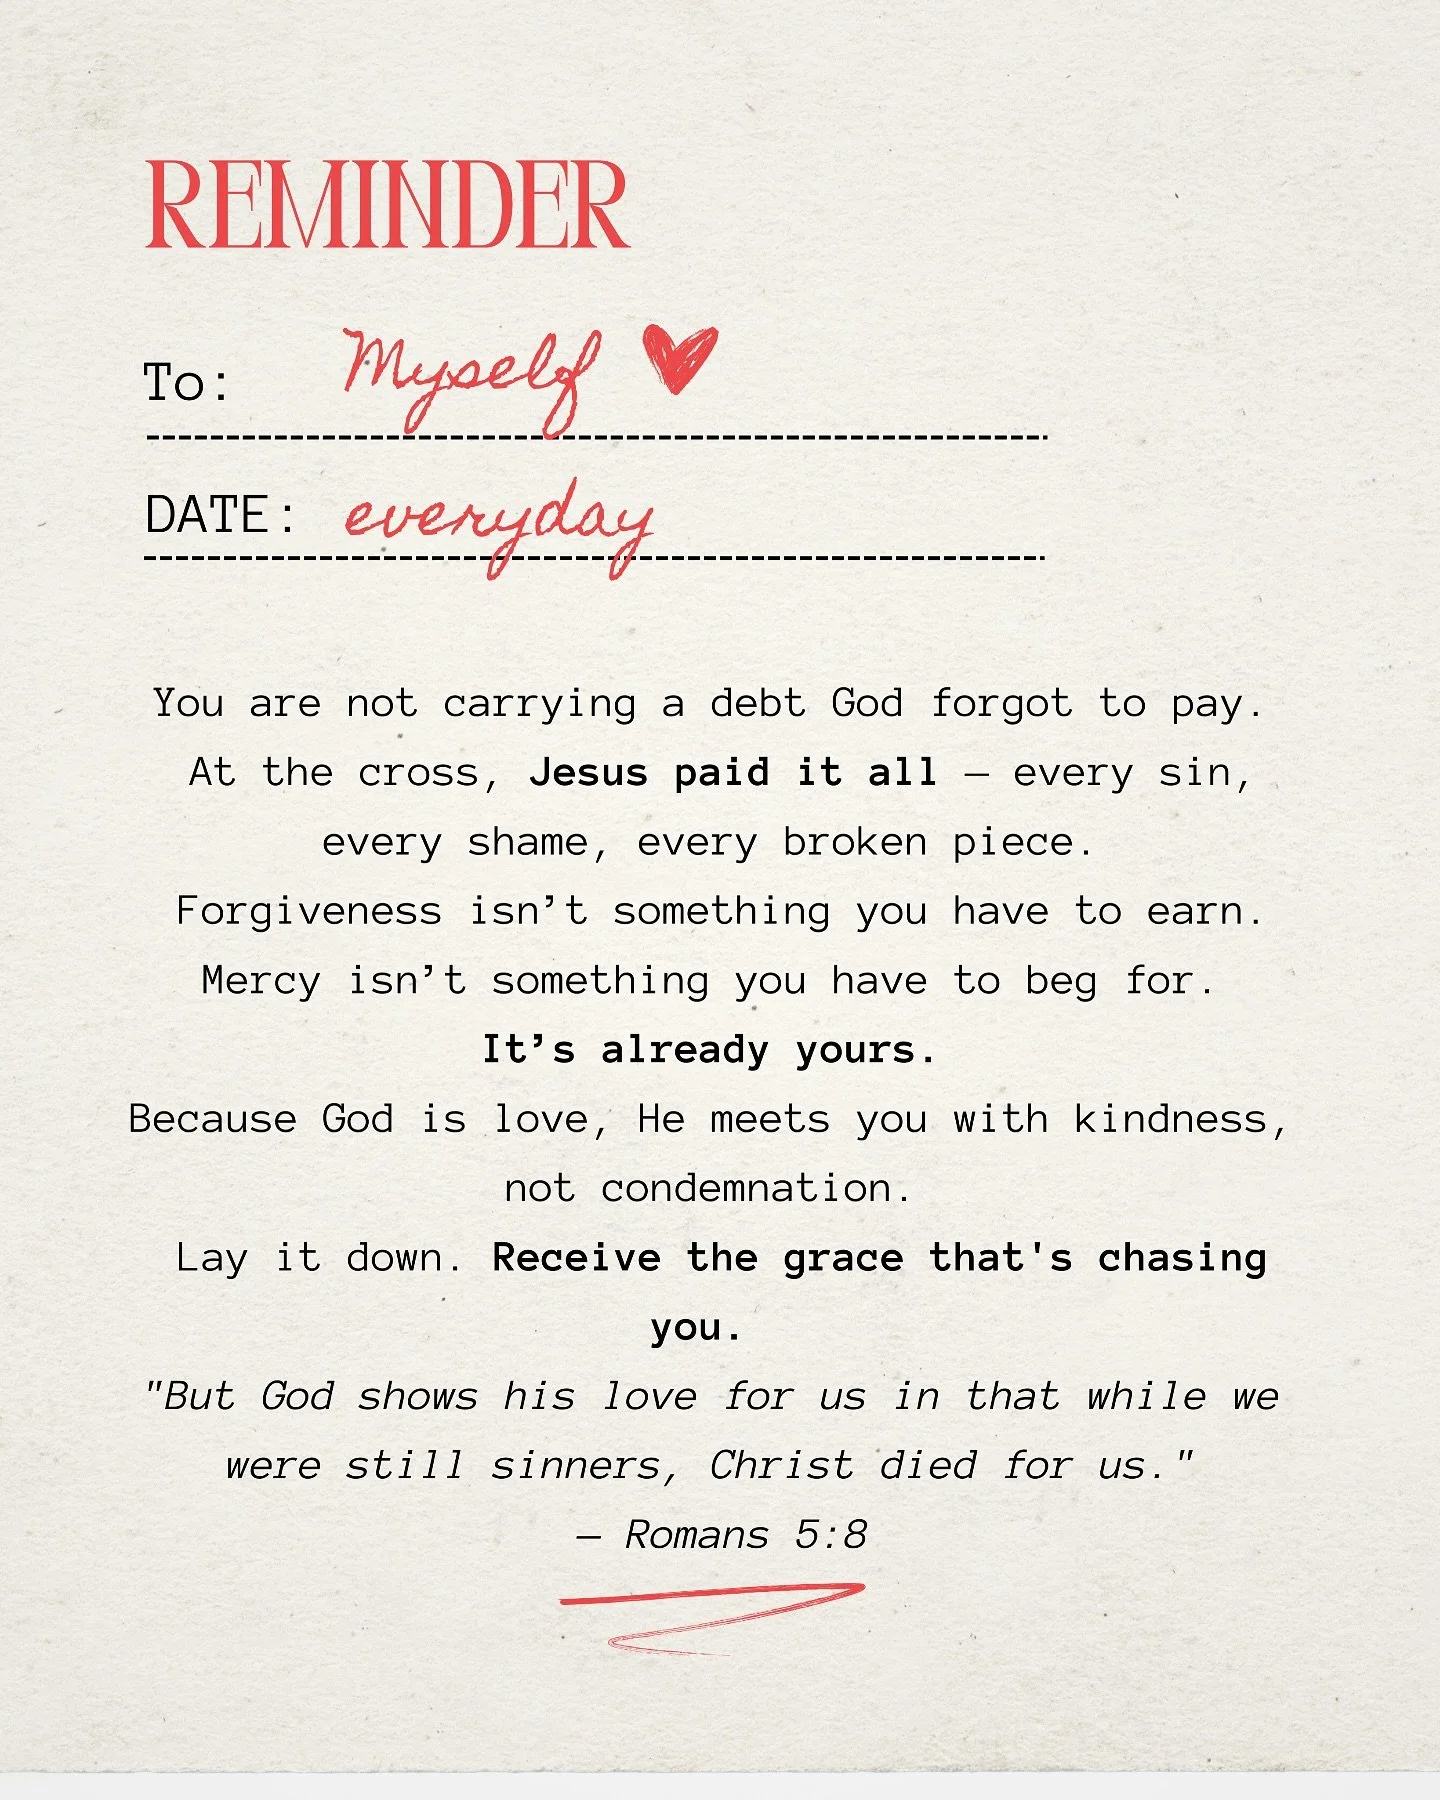 REMINDER
To: Myself
DATE: everyday
You are not carrying a debt God forgot to pay.
At the cross, Jesus paid it all – every sin,
every shame, every broken piece.
Forgiveness isn’t something you have to earn.
Mercy isn’t something you have to beg for.
It’s already yours.
Because God is love, He meets you with kindness,
not condemnation.
Lay it down. Receive the grace that's chasing
you.
"But God shows his love for us in that while we
were still sinners, Christ died for us."
– Romans 5:8